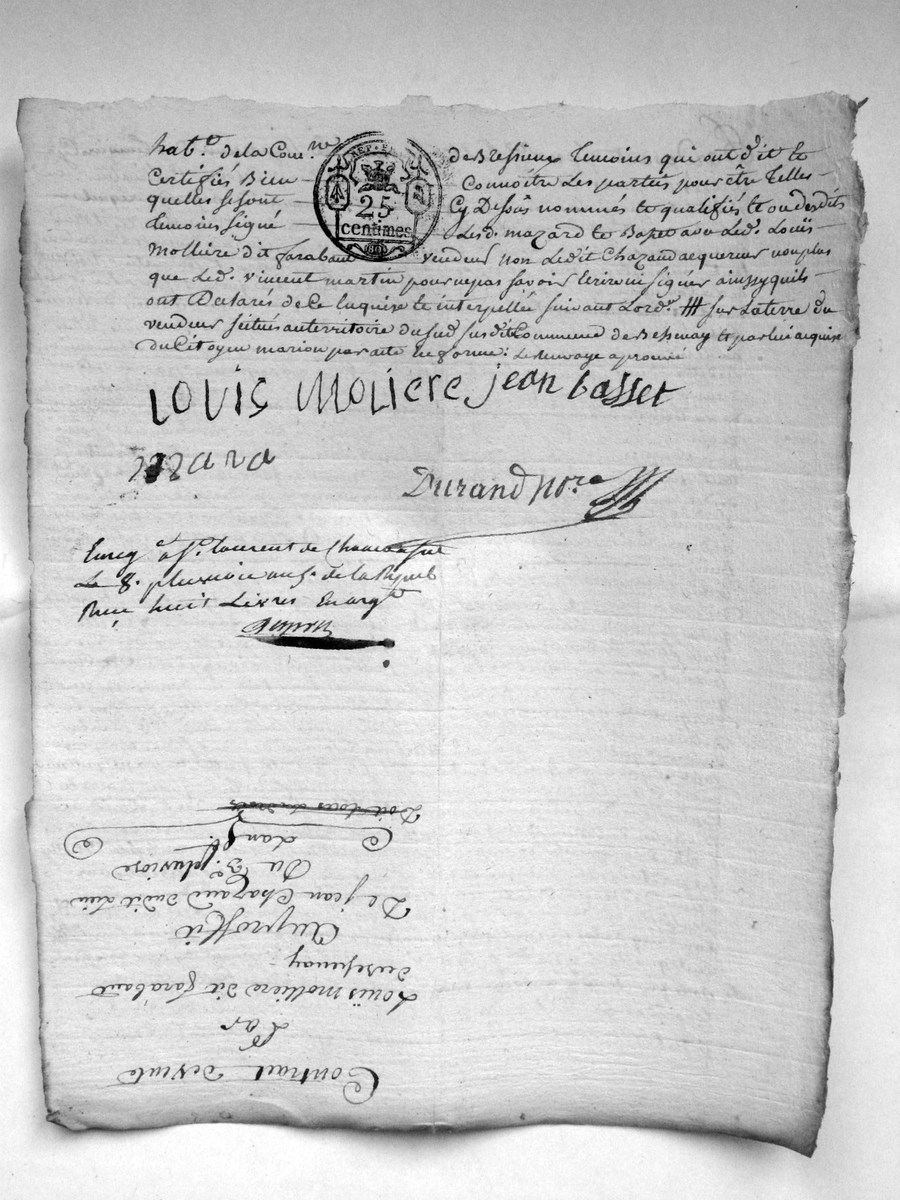 habt. de la Comne de Bressieux temoins qui ont dit te
Certifiés Bien Connoître Les parties pour être telles
quelles se sont Cy Dessus nommés te qualifiés te ondesdits
temoins signé Lesd. mazard te Basset avec Led. Louïs
Mollière dit farabaud vendeur non Ledit Chazaud acquereur nonplus
que Led. vincent martin pour ne pas savoir Ecrire ni signer ainssy quils
ont Déclarés de Ce Enquise te interpellée suivant Lord. sur La terre du
vendeur situés au territoire du sud susdit Commune de te par lui acquise
du Citoyen marion par acte En forme: Le Renvoye aprouvé
REP. FRA
25
centimes
LOUIS MOLIERE jean basset
mazard
Durand Nore
Enreg a St. Laurent de
Le 8. pluviose an de la Repub
Reçu huit Livres En argt
Contrat de vente
Par
Louïs mollière dit farabaud
Auproffit
De jean Chazaud dudit Lieu
Du 3e. pluviose
L'an